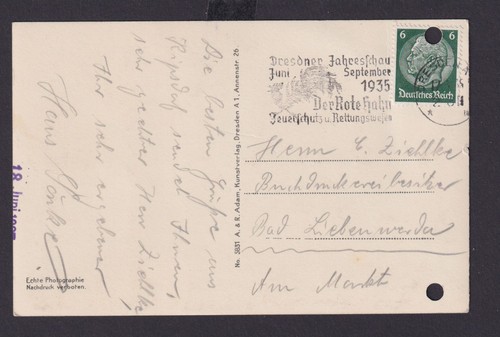 Die besten Grüße aus
Kipsdorf sendet Ihnen,
sehr geehrter Herr Ziehlke
Ihr sehr ergebener
Hans
18. Juni
Echte Photographie
Nachdruck verboten.
No. 3851 A. & R. Adam, Kunstverlag, Dresden A 1, Annenstr. 26
Dresdner Jahresschau
Juni September
1935
Der Rote Hahn
Feuerschutz u. Rettungswesen
6 6
Deutsches Reich
Herrn C. Ziehlke
Buchdruckereibesitzer
Bad Liebenwerda
Am Markt